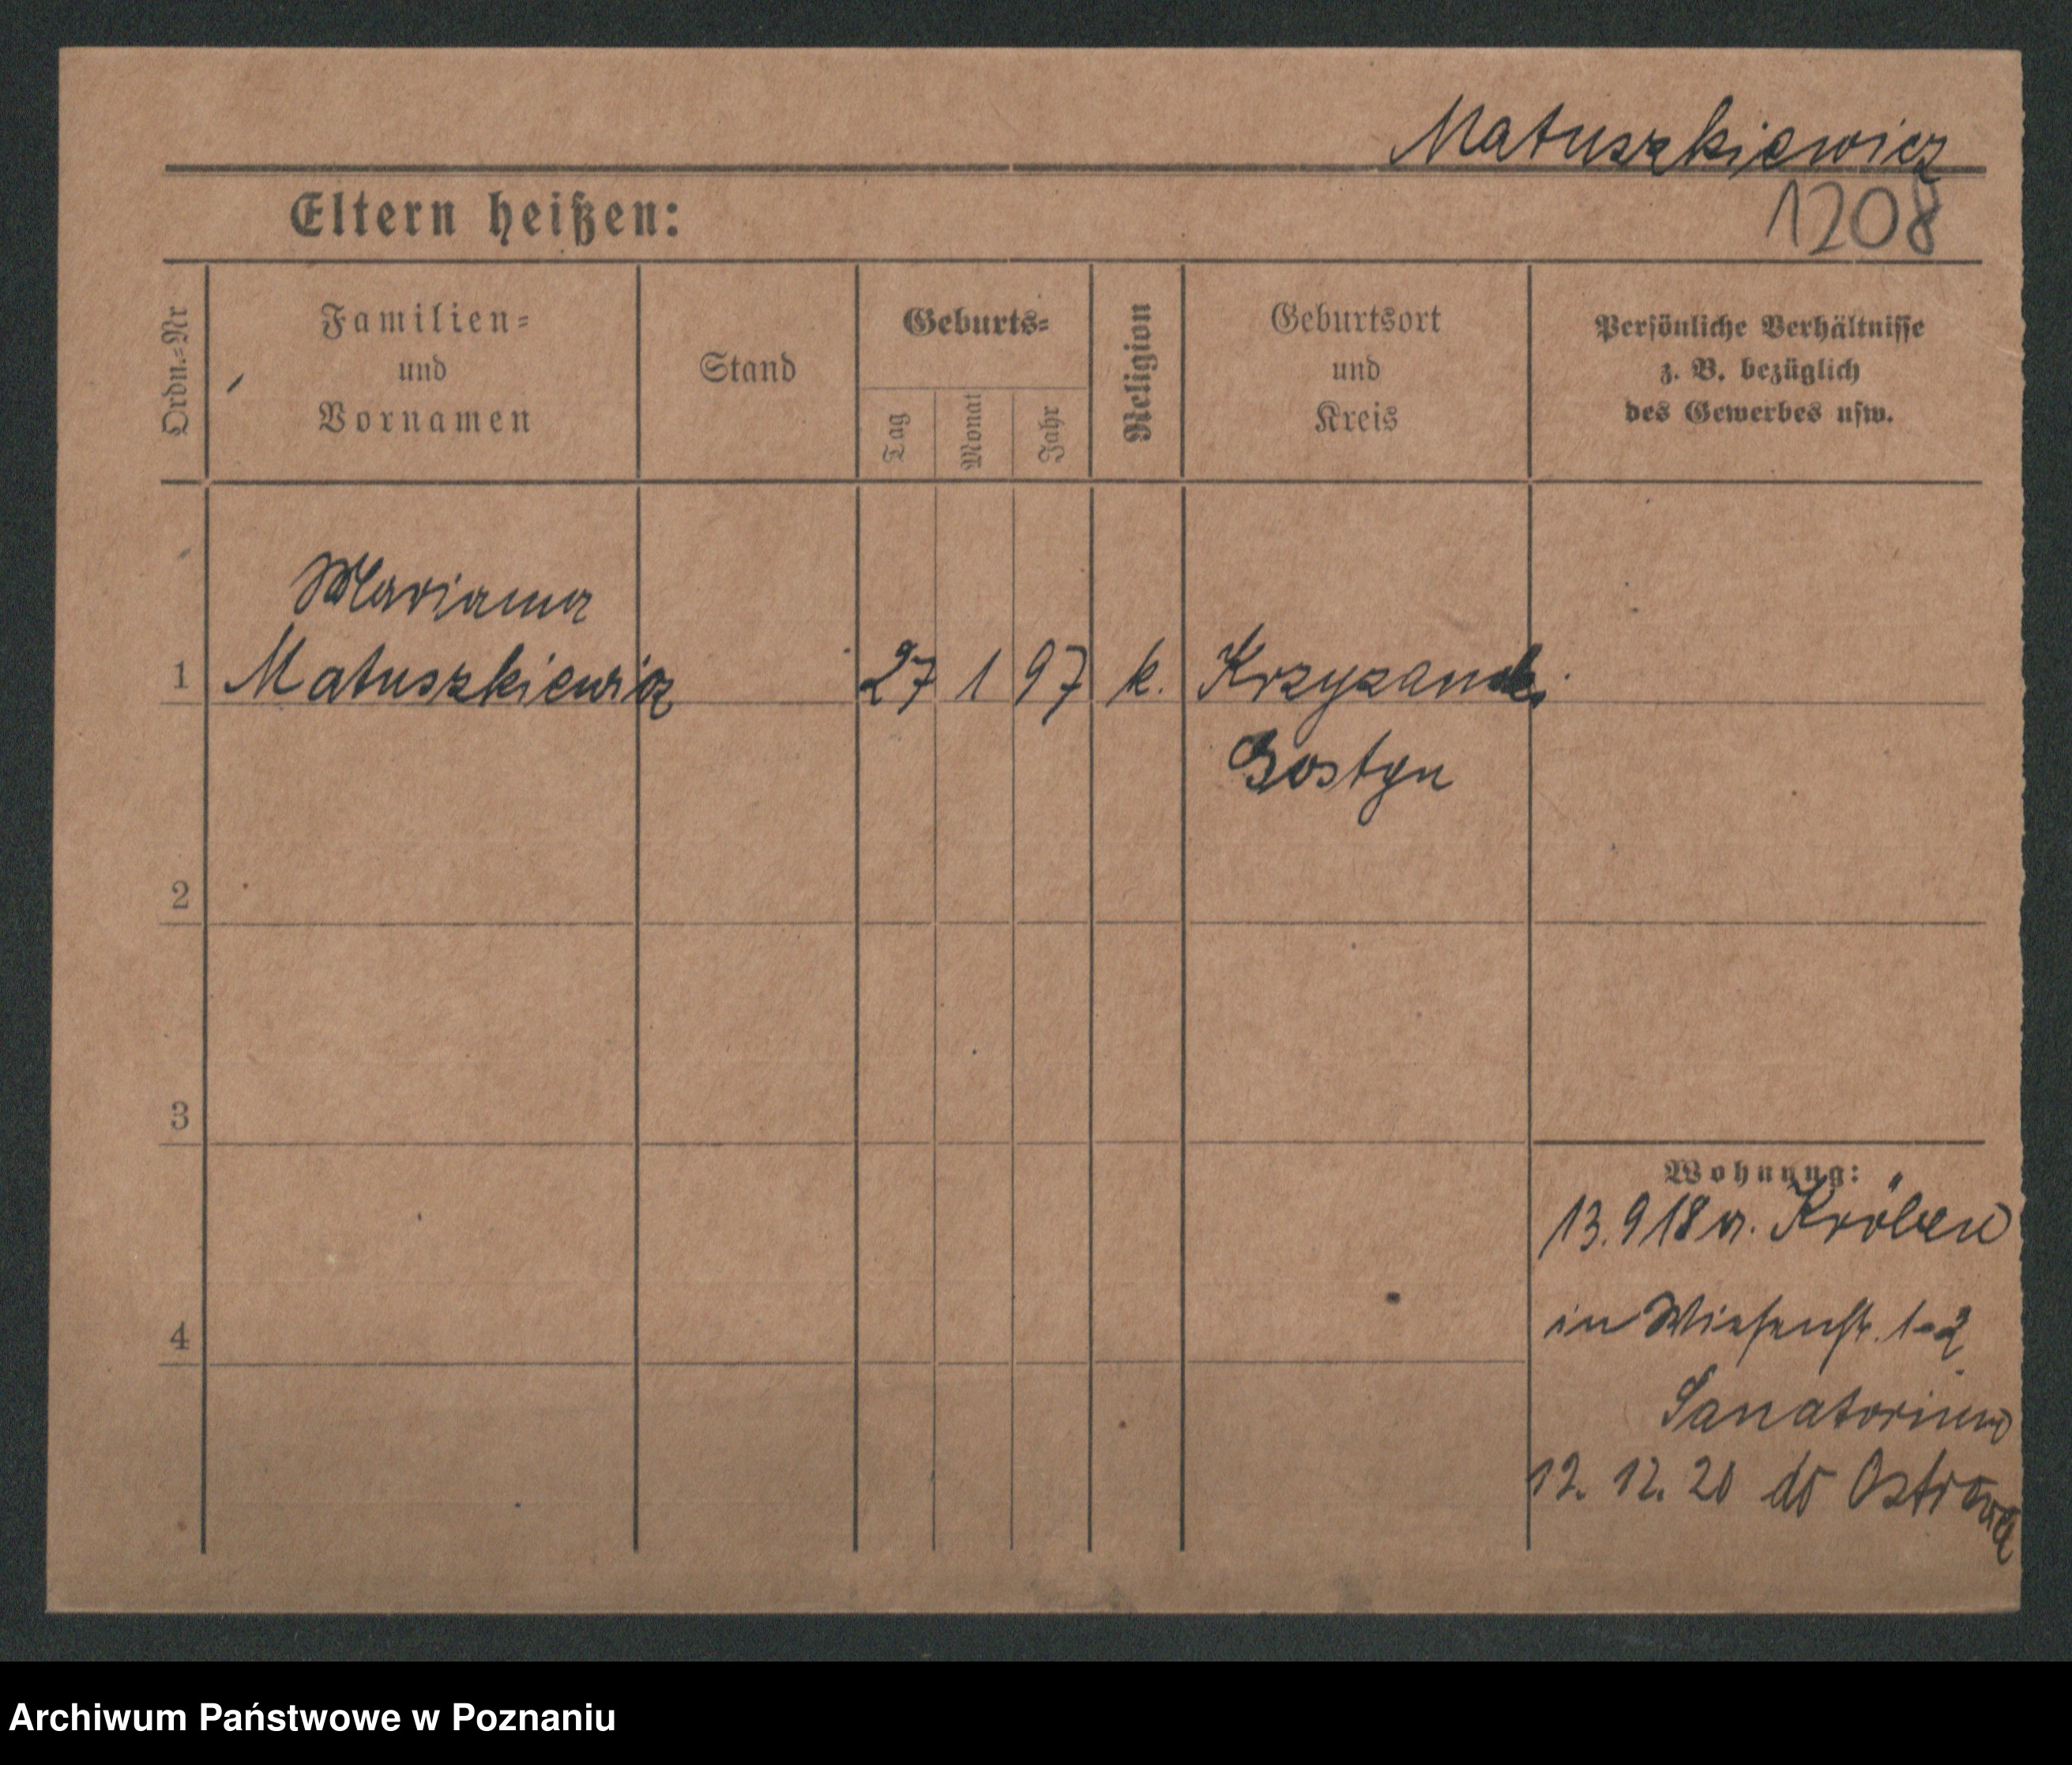 Matuszkiewicz
1208
Eltern heißen:
Ordn.=Nr
Familien=
und
Vornamen
Stand
Geburts=
Tag
Monat
Jahr
Religion
Geburtsort
und
Kreis
Persönliche Verhältnisse
z. B. bezüglich
des Gewerbes usw.
Marianna
1 Matuszkiewicz 27 1 97 k. Krzyzanki
Gostyn
2
3
Wohnung:
13.9 18 v. Kröben
in Wiesenstr. 1-2
4
Sanatorium
12. 12. 20 do Ostrowa
Archiwum Państwowe w Poznaniu